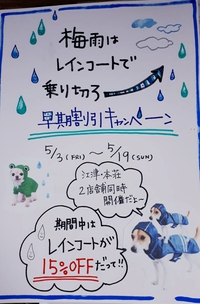 梅雨は
レインコートで
乗り切ろう
早期割引キャンペーン
5/3(FRI) ～ 5/19(SUN)
江津・本荘
2店舗同時
開催だよ～
期間中は
レインコートが
15%OFFだって!!